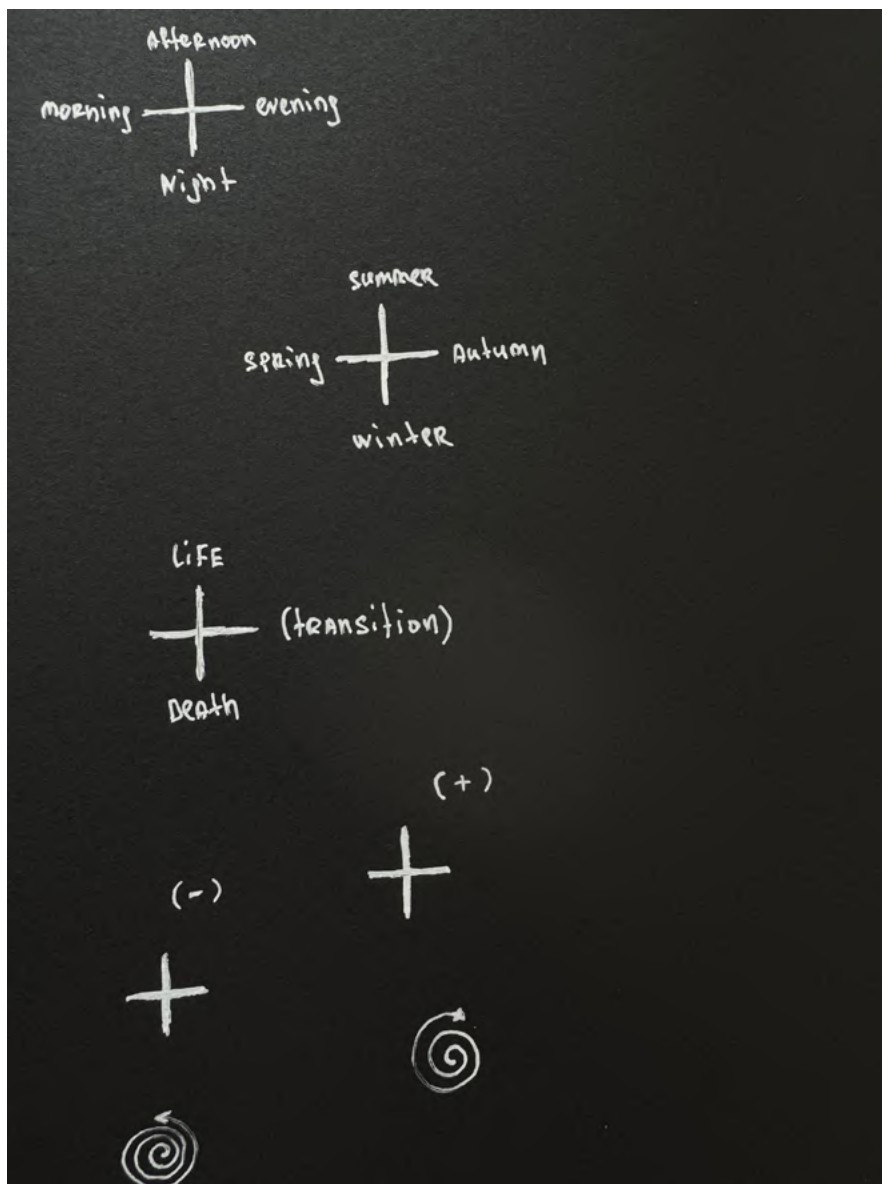 Afternoon
morning evening
Night
summer
spring Autumn
winter
LiFE
(transition)
Death
(+)
(-)